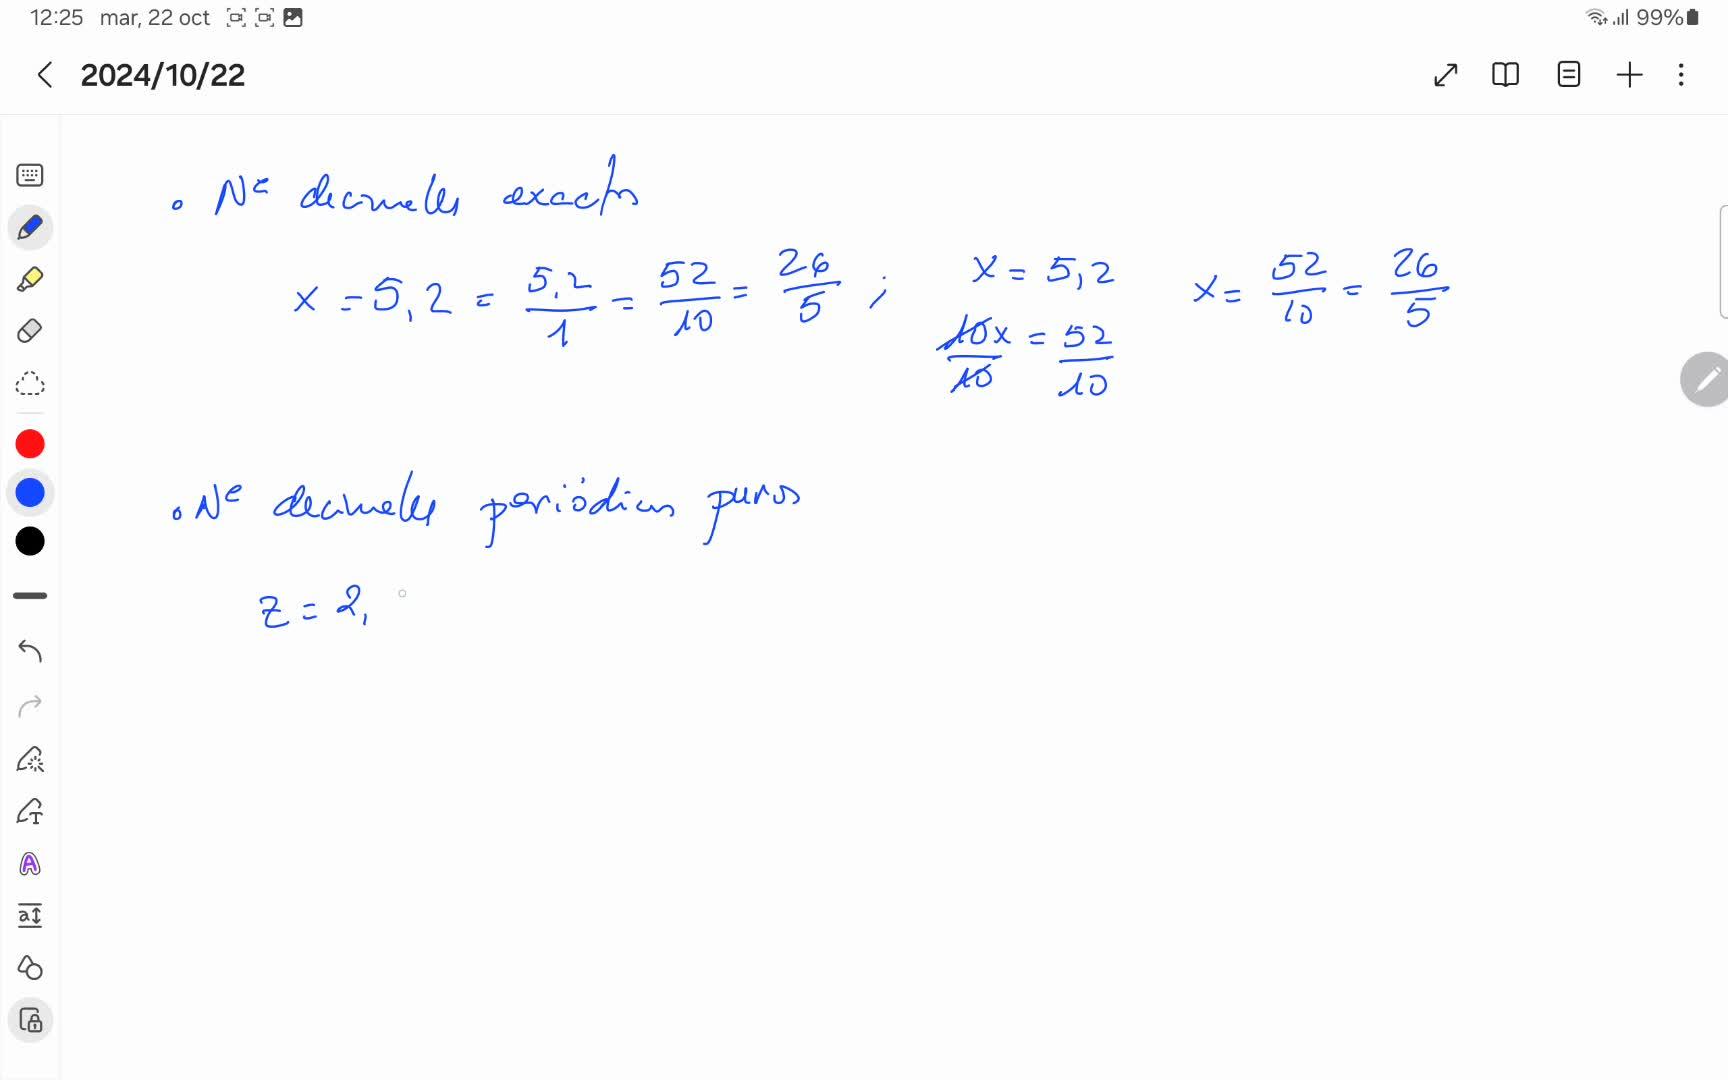 12:25 mar, 22 oct 99%
2024/10/22
• Nº decimales exactos
x = 5,2 = 5,2/1 = 52/10 = 26/5 ; x = 5,2 x = 52/10 = 26/5
10x/10 = 52/10
• Nº decimales periódicos puros
z = 2,